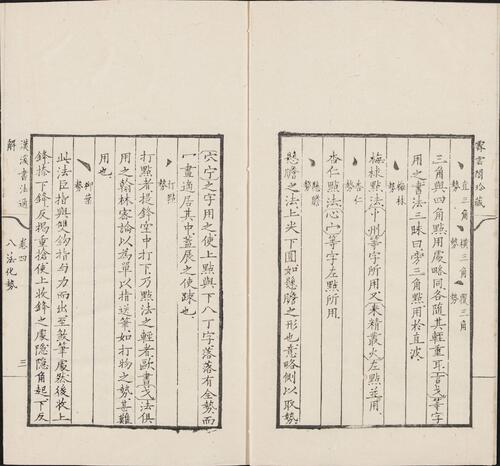 雲閣珍藏
直三角勢 橫三角勢 覆三角勢
三角與四角點用處略同各隨其輕重耳言戈等字
用之書法三昧曰旁三角點用於直波
梅核勢
梅核點法州等字所用又精叢火左點並用
杏仁勢
杏仁點法心宀等字左點所用
懸膽勢
懸膽之法上尖下圓如懸膽之形也意略側以取勢
穴宁之字用之使上點與下八丁字落落有全勢而
一畫適居其中蓋展之使踈也
打點勢
打點者提鋒空中打下乃點法之輕者歐書戈法俱
用之翰林密論以為單以指送筆如打物之勢甚難
用也
柳葉勢
此法臣指與雙鉤指與力而出至煞筆處然後收上
鋒搭下鋒反揭重搶使上收鋒之處隱隱角起下反
漢溪書法通解 卷四 八法化勢 三